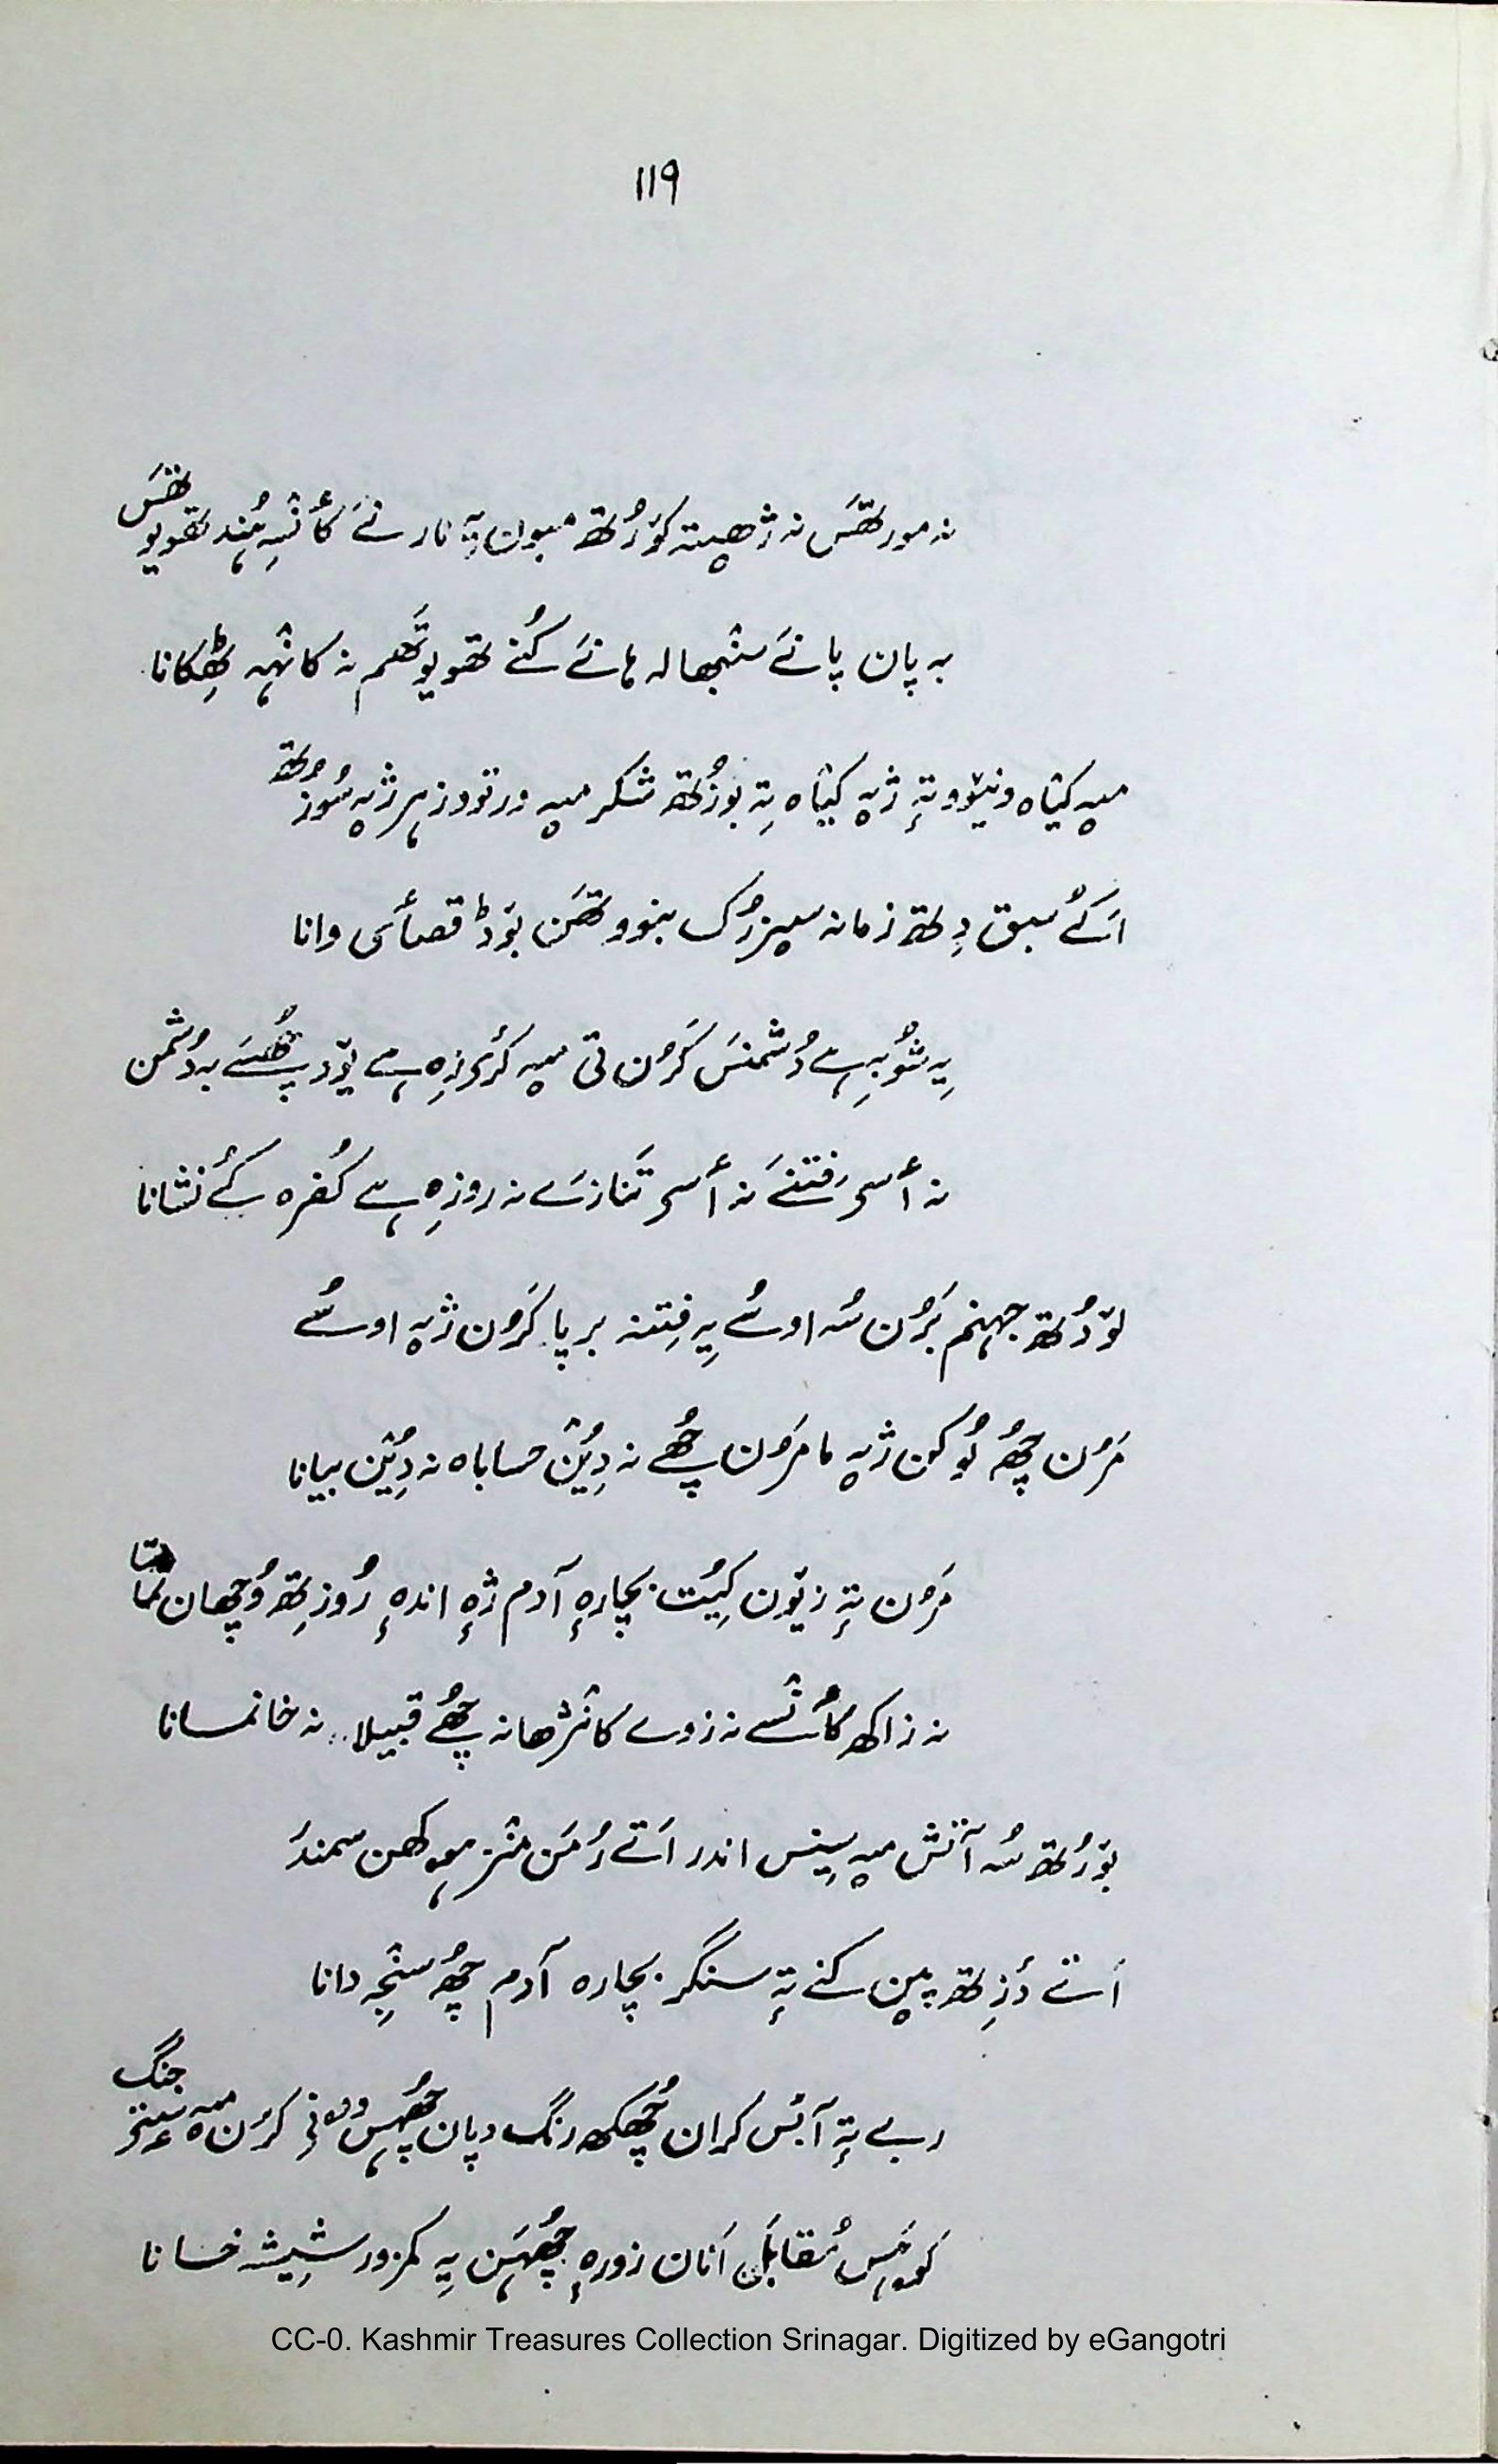 119
نہ مورتھَس نہ ژھیتہ کوٚرُتھ میون یہِ نار نے کأنٛسہِ ہُند تھویو تھَس
بہ پان پانَے سنٛبھالہ ہانَے کُنے تھویوتَھم نہ کانٛہہ ٹھِکانا
میہ کیٛاہ ونیوٚو تہٕ ژیہ کیٛاہ تہِ بوٗزُتھ شکر میہ ورتوو زہر ژیہ سوٗزُتھ
اَکُے سبق دِتھ زمانہ سیزرُک بنوو تھَن بوٚڈ قصأئی وانا
یہِ شوٗبہِ ہے دُشمنَس کَرُن تی میہ کرۍزِہ ہے یوٚد پُھسَے بہ دُشمن
نہ أسۍ فتنَے نہ أسۍ تَنازَے نہ روزِہ ہے کُفرہ کُے نشانا
لوٚدُتھ جہنم بَرُن سُہ اوسُے یہِ فِتنہ برپا کَرُن ژیہ اوسُے
مَرُن چھُ لُوکن ژیہ ما مَرُن چھُے نہ دِیُن حساباہ نہ دِیُن بیانا
مَرُن تہٕ زیوٚن کِیُت بچارہٕ آدم ژہٕ اندہٕ رُوزِتھ وُچھان تماشا
نہ زاکھ کأنٛسے نہ زوے کانٛژھا نہ چھُے قبیلا.. نہ خانمانا
بوٚرُتھ سُہ آتش میہ سینس اندر اَتے رُمَن منٛز ہیوکھن سمندَر
اَتے دَزِتھ پیَن کنے تہٕ سنگر بچارہ آدم چھُ سنٛجہِ دانا
ربے تہٕ آبَس کران چُھکھ رنگ دپان چُھہس وۄنۍ کَرُن میہ سٟتۍ جنگ
کوہَس مُقابل اَنان زورہٕ چُھہَن یہِ کمزور شیٖشہ خانا
CC-0. Kashmir Treasures Collection Srinagar. Digitized by eGangotri